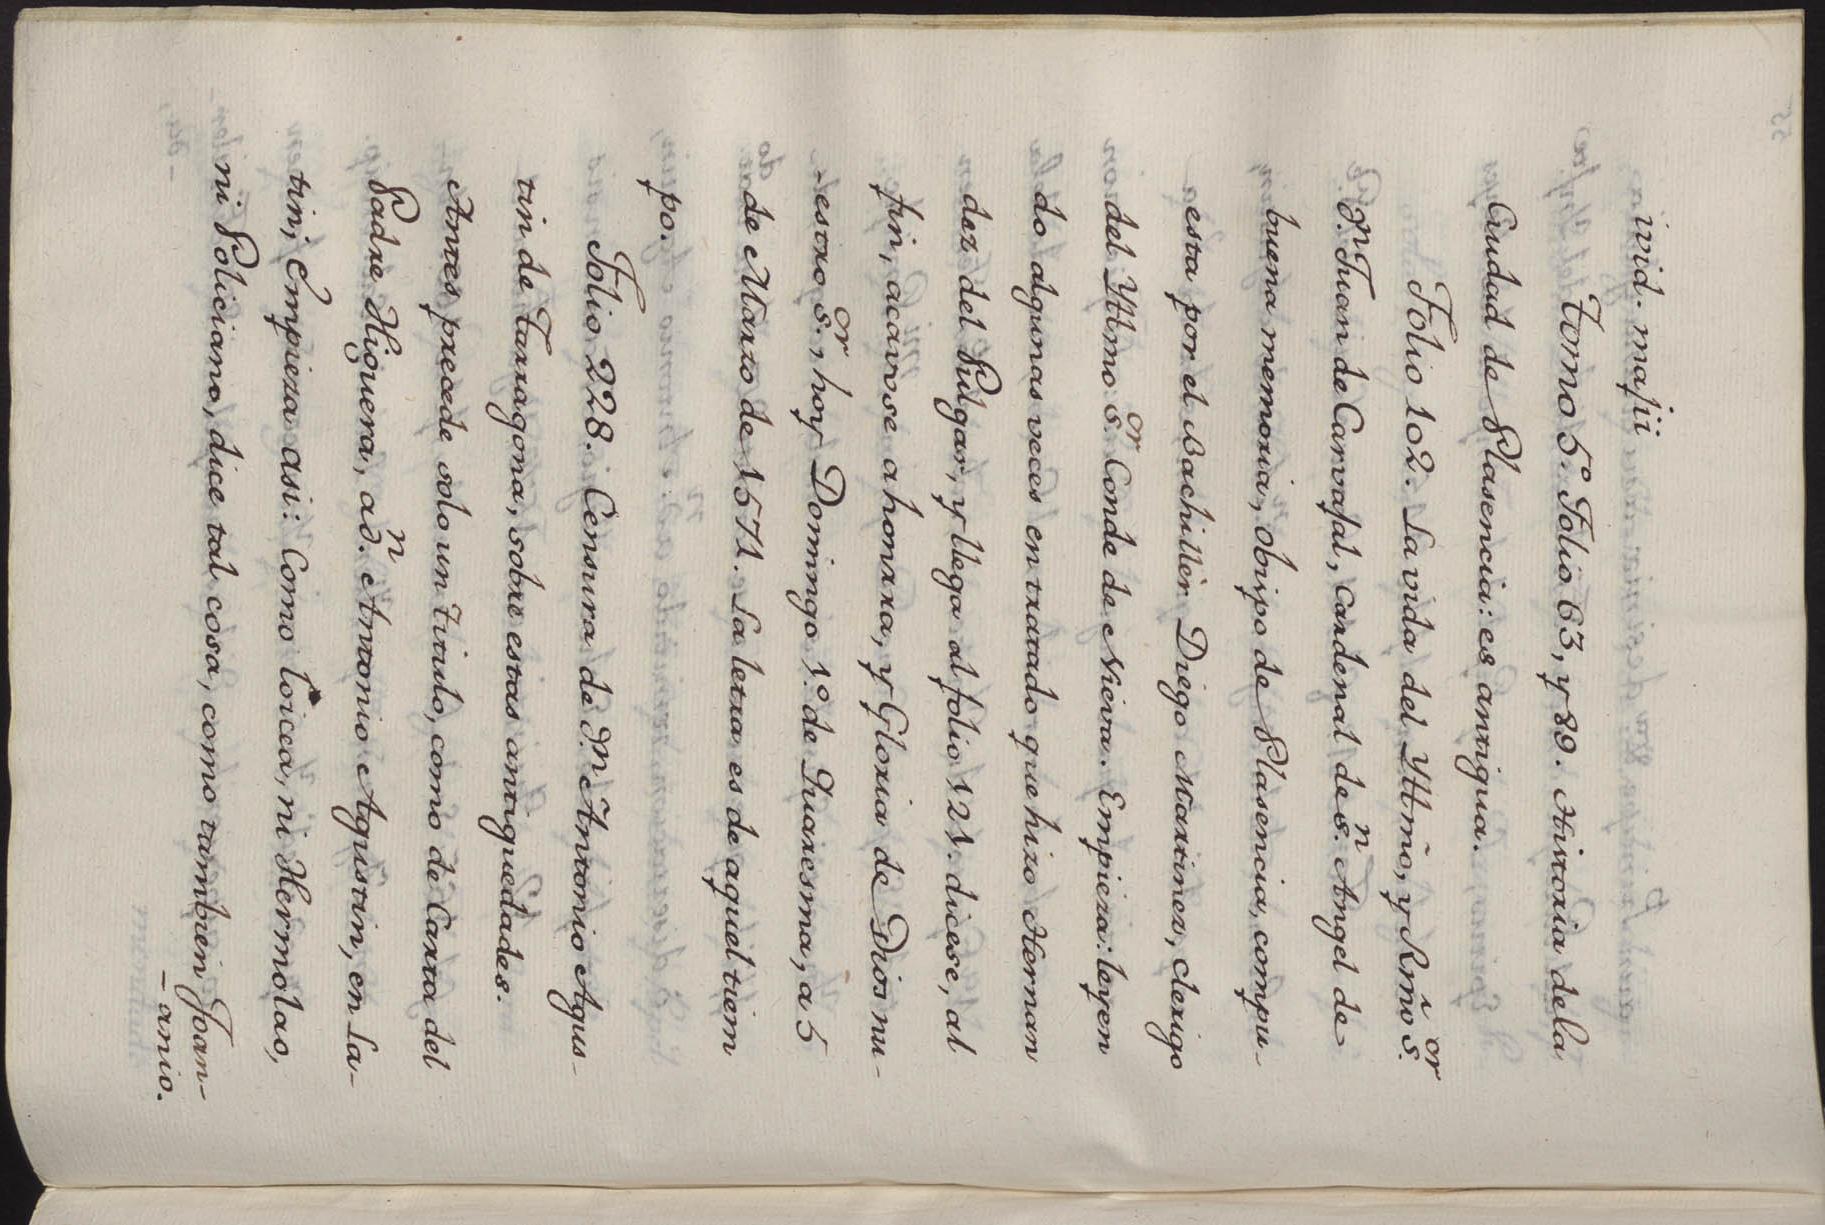 ivid. majii
Tomo 5º. Folio 63, y 89. Historia de la
Ciudad de Plasencia: es antigua.
Folio 102. La vida del Yllmõ, y Rmõ S.or
D.n Juan de Carvajal, Cardenal de S.n Angel de
buena memoria, obispo de Plasencia, compu-
esta por el Bachillèr Diego Martinez, clerigo
del Yllmo S.or Conde de Nieva. Empieza: leyen
do algunas veces en tratado que hizo Hernan
dez del Pulgar, y llega al folio 121. dicese, al
fin, acavose a honrra, y Gloria de Dios nu-
-estro S.or, hoy Domingo 1.º de Quaresma, a 5
de Marzo de 1571. La letra es de aquel tiem
po.
Folio 228. Censura de D.n Antonio Agus-
tin de Tarragona, sobre estas antiguedades.
Antes precede solo un titulo, como de Carta del
Padre Higuera, a D.n Antonio Agustin, en La-
tin; Empieza asi: Como loicea, ni Hermolao,
ni Policiano, dice tal cosa, como tambien Joan-
-anio.